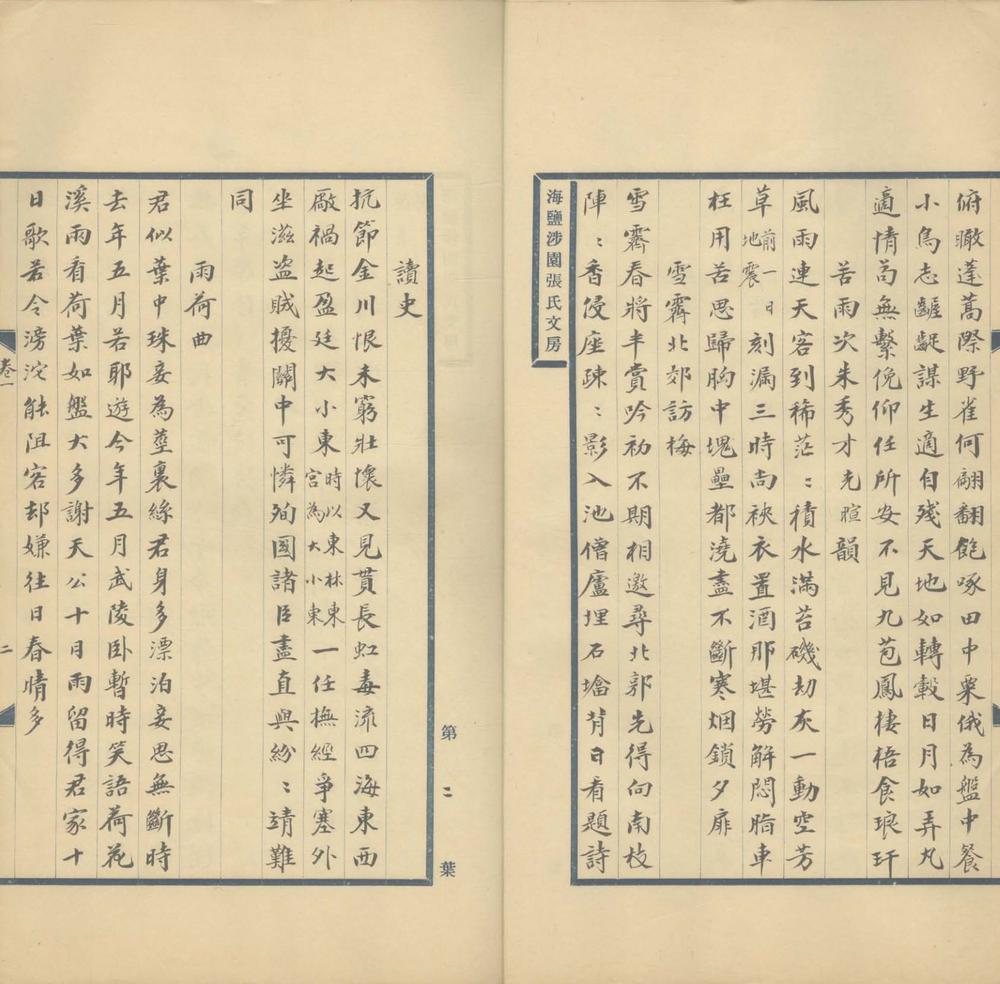 俯瞰蓬蒿際野雀何翩翻飽啄田中粟俄為盤中餐
小鳥志齷齪謀生適自殘天地如轉轂日月如弄丸
適情苟無繫俛仰任所安不見九苞鳳棲梧食琅玕
苦雨次朱秀才元暄韻
風雨連天客到稀茫〻積水滿苔磯劫灰一動空芳
草前一日地震刻漏三時尚袂衣置酒那堪勞解悶脂車
枉用苦思歸胸中塊壘都澆盡不斷寒烟鎖夕扉
雪霽北郊訪梅
雪霽春將半賞吟初不期相邀尋北郭先得向南枝
陣〻香侵座疎〻影入池僧廬埋石墖背日看題詩
海鹽涉園張氏文房
第二葉
讀史
抗節金川恨未窮壯懷又見貫長虹毒流四海東西
廠禍起盈廷大小東時以東林東宮為大小東一任撫經爭塞外
坐滋盜賊擾關中可憐殉國諸臣盡直與紛〻靖難
同
雨荷曲
君似葉中珠妾為莖裏絲君身多漂泊妾思無斷時
去年五月若耶遊今年五月武陵卧暫時笑語荷花
溪雨看荷葉如盤大多謝天公十月雨留得君家十
日歌若令滂沱能阻客却嫌往日春晴多
卷一
二